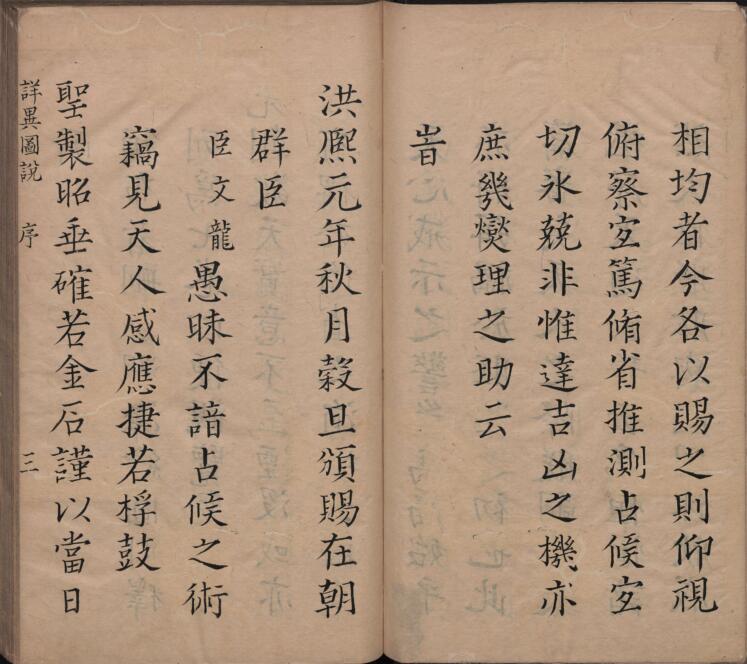 相均者今各以賜之則仰視
俯察宐篤脩省推測占候宐
切氷兢非惟達吉凶之機亦
庶幾爕理之助云
旹
洪熈元年秋月糓旦頒賜在朝
群臣
臣文龍愚昧不諳占候之術
竊見天人感應捷若桴鼓
聖製昭垂確若金石謹以當日
詳異圖說 序 三